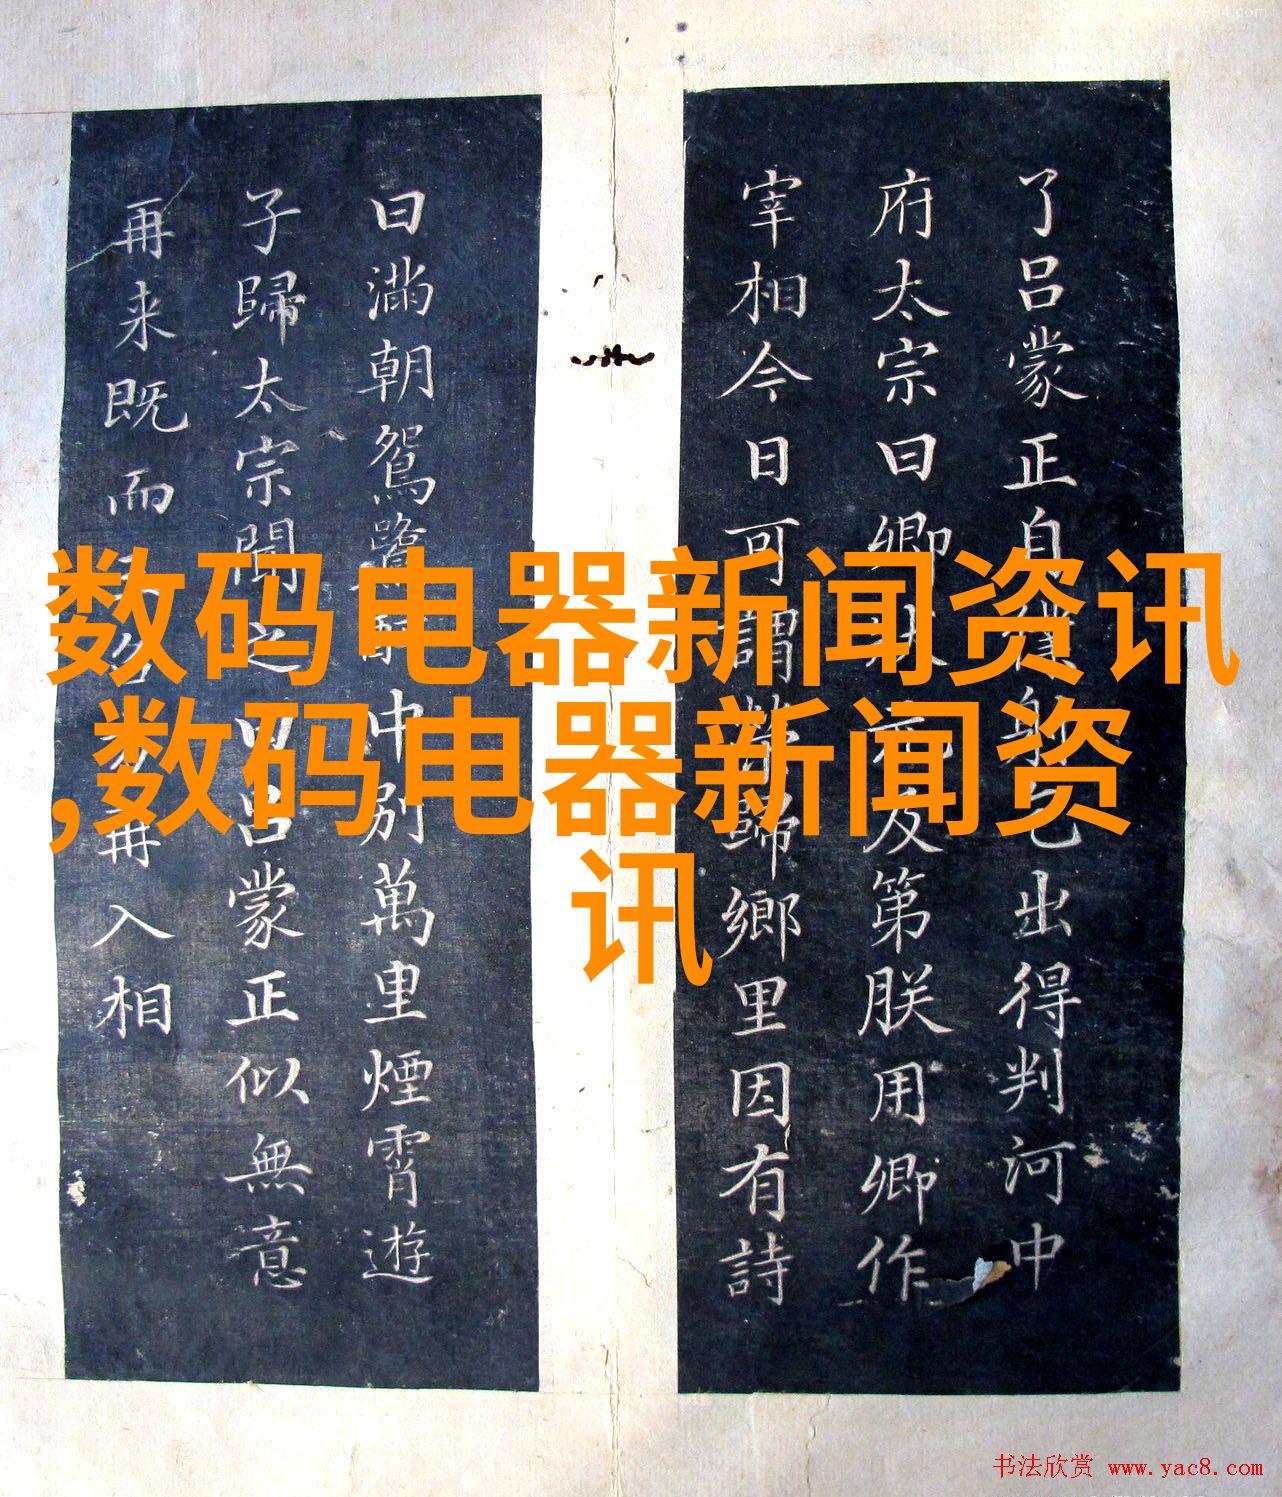 了呂蒙正自僕射乞出得判河中
府太宗曰卿狀元及第朕用卿作
宰相今日可謂榮歸鄉里因有詩
曰滿朝鴛鷺醉中別萬里煙霄遊
子歸太宗聞之曰呂蒙正似無意
再来既而再入相
数码电器新闻资讯
,数码电器新闻资
讯
书法欣赏 www.yac8.com